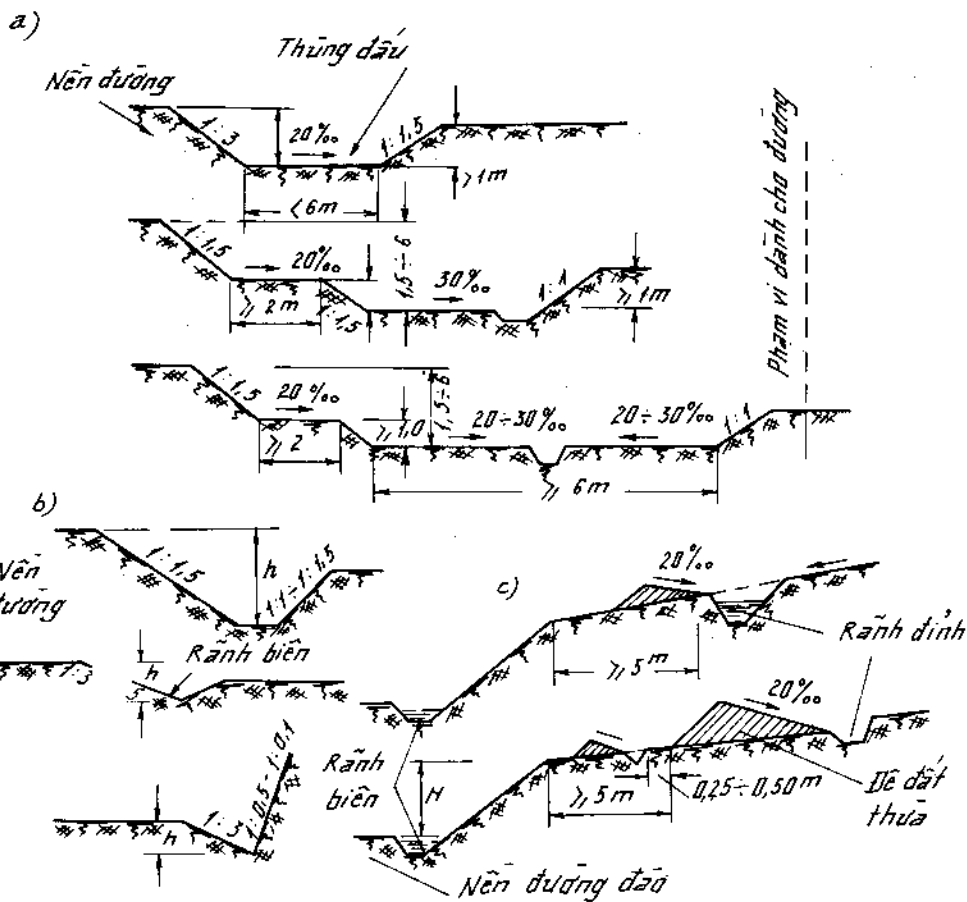 a)
Nền đường
Thùng đấu
1:3
20‰
1:1,5
>1m
<6m
Phạm vi dành cho đường
1:1,5
20‰
1,5÷6
30‰
1:1
⩾1m
⩾2m
1:1,5
1:1,5
20‰
1,5÷6
⩾1,0
20÷30‰
20÷30‰
1:1
⩾2
⩾6m
b)
1:1,5
h
1:1÷1:1,5
Nền
đường
Rãnh biên
1:3
h
1:3
h
1:0,5÷1:0,1
c)
20‰
Rãnh đỉnh
⩾5m
20‰
Rãnh
biên
H
⩾5m
0,25÷0,50m
Đê đất
thừa
Nền đường đào